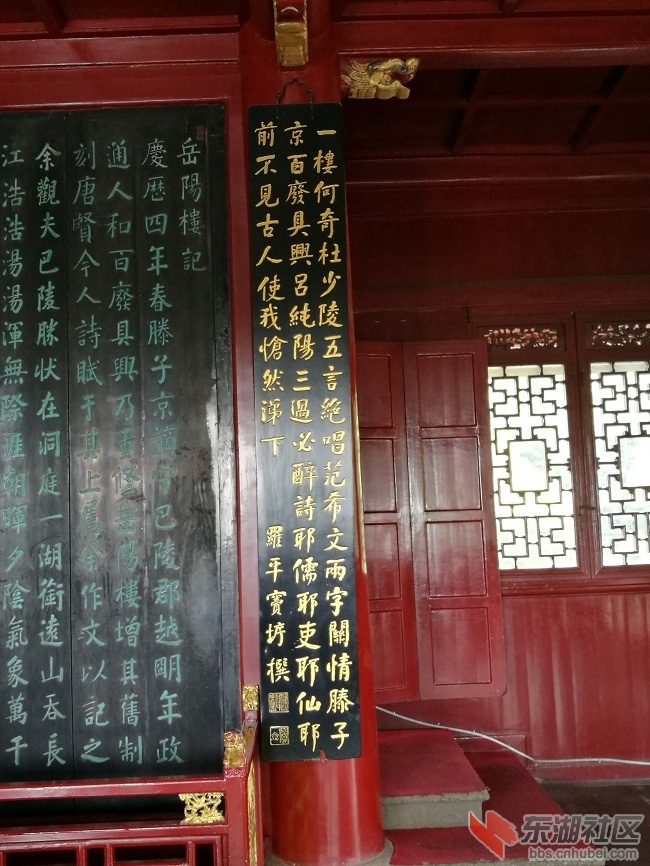 一樓何奇杜少陵五言絕唱范希文兩字關情滕子
京百廢具興呂純陽三過必醉詩耶儒耶吏耶仙耶
前不見古人使我愴然涕下
羅平竇垿撰
岳陽樓記
慶歷四年春滕子京謫守巴陵郡越明年政
通人和百廢具興乃重修岳陽樓增其舊制
刻唐賢今人詩賦于其上屬余作文以記之
余觀夫巴陵勝狀在洞庭一湖銜遠山吞長
江浩浩湯湯渾無際涯朝暉夕陰氣象萬千
东湖社区
bbs.cnhubei.com